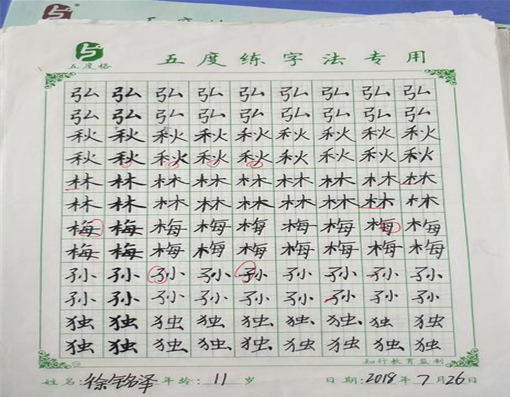 五度格 五度练字法专用
弘 弘 弘 弘 弘 弘 弘 弘 弘
弘 弘 弘 弘 弘 弘 弘 弘 弘
秋 秋 秋 秋 秋 秋 秋 秋 秋
秋 秋 秋 秋 秋 秋 秋 秋 秋
林 林 林 林 林 林 林 林 林
林 林 林 林 林 林 林 林 林
梅 梅 梅 梅 梅 梅 梅 梅 梅
梅 梅 梅 梅 梅 梅 梅 梅 梅
孙 孙 孙 孙 孙 孙 孙 孙 孙
孙 孙 孙 孙 孙 孙 孙 孙 孙
独 独 独 独 独 独 独 独 独
独 独 独 独 独 独 独 独 独
知行教育监制
姓名:徐铭泽 年龄:11岁 日期:2018年7月26日